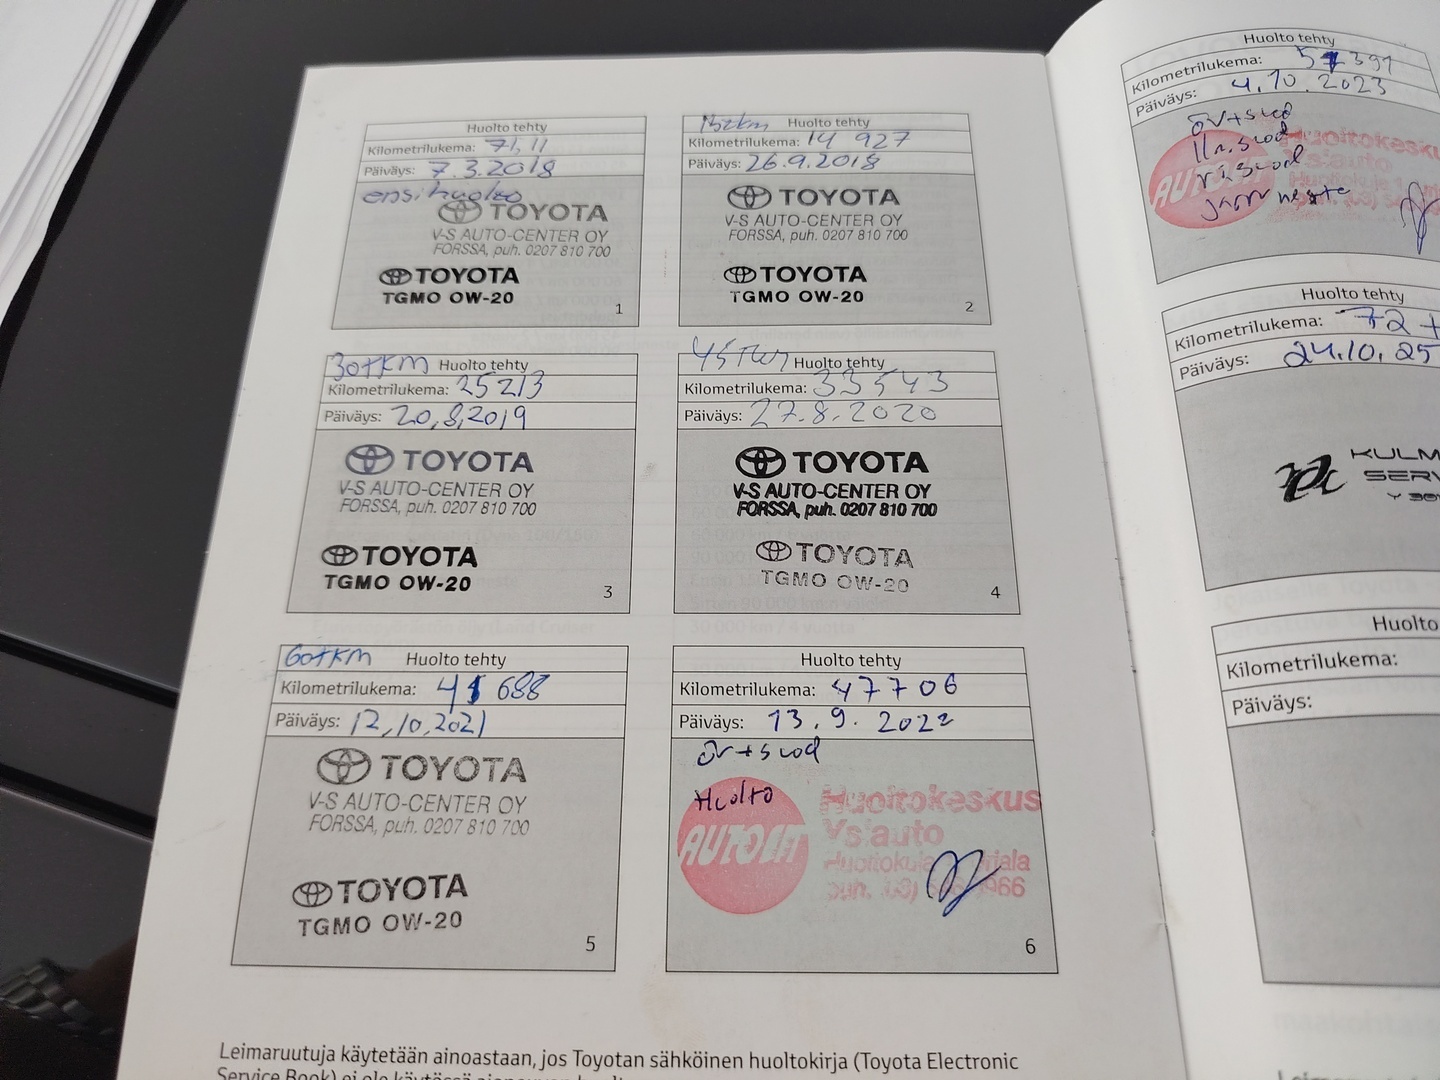 Huolto tehty
Kilometrilukema: 7111
Päiväys: 7.3.2018
ensihuolto
TOYOTA
V-S AUTO-CENTER OY
FORSSA, puh. 0207 810 700
TOYOTA
TGMO OW-20
1
15tkm Huolto tehty
Kilometrilukema: 14 927
Päiväys: 26.9.2018
TOYOTA
V-S AUTO-CENTER OY
FORSSA, puh. 0207 810 700
TOYOTA
TGMO OW-20
2
30tKM Huolto tehty
Kilometrilukema: 25213
Päiväys: 20.8.2019
TOYOTA
V-S AUTO-CENTER OY
FORSSA, puh. 0207 810 700
TOYOTA
TGMO OW-20
3
45Tkm Huolto tehty
Kilometrilukema: 33543
Päiväys: 27.8.2020
TOYOTA
V-S AUTO-CENTER OY
FORSSA, puh. 0207 810 700
TOYOTA
TGMO OW-20
4
60tKM Huolto tehty
Kilometrilukema: 41 688
Päiväys: 12.10.2021
TOYOTA
V-S AUTO-CENTER OY
FORSSA, puh. 0207 810 700
TOYOTA
TGMO OW-20
5
Huolto tehty
Kilometrilukema: 47706
Päiväys: 13.9.2022
öv+suod
Huolto
AUTOFIT Huoltokeskus
Ys'auto
puh.
6
Leimaruutuja käytetään ainoastaan, jos Toyotan sähköinen huoltokirja (Toyota Electronic
Service Book) ei ole käytössä
Huolto tehty
Kilometrilukema:
Päiväys: 4.10.2023
öv+suod
Iln.suod
suod
jarr neste
Huoltokesku
Ys'auto
Huolto tehty
Kilometrilukema: 72 t
Päiväys: 24.10.25
KULM
SERV
Huolto
Kilometrilukema:
Päiväys: